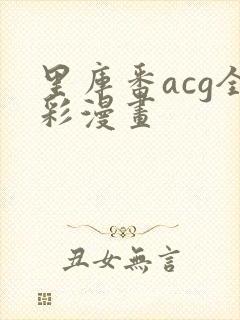 里庫番acg全
彩漫畫
丑女無言